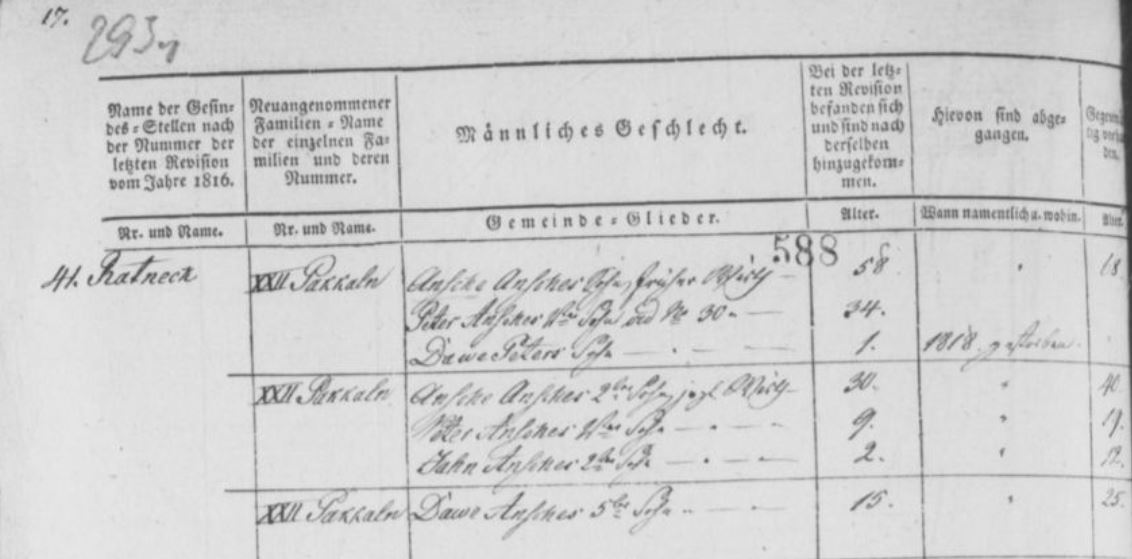 17.
293
Name der Gesin=
des=Stellen nach
der Nummer der
letzten Revision
vom Jahre 1816.
Neuangenommener
Familien=Name
der einzelnen Fa=
milien und deren
Nummer.
Männliches Geschlecht.
Bei der letz=
ten Revision
befanden sich
und sind nach
derselben
hinzugekom=
men.
Hievon sind abge=
gangen.
Gegenwär
tig vorha
den.
Nr. und Name.
Nr. und Name.
Gemeinde=Glieder.
Alter.
Wann namentlich u. wohin.
Alter.
588
41. Ratneck XXII Pakkaln Ansche Ansches Sohn, früher Wirth 58 " 68.
Peter Ansches 1ter Sohn vid No 30. 34.
Dawe Peters Sohn 1. 1818 gestorben.
XXII Pakkaln Ansche Ansches 2ter Sohn, jezl. Wirth 30. " 40.
Peter Ansches 1ter Sohn 9. " 19.
Jahn Ansches 2ter Sohn 2. " 12.
XXII Pakkaln Dawe Ansches 5ter Sohn 15. " 25.